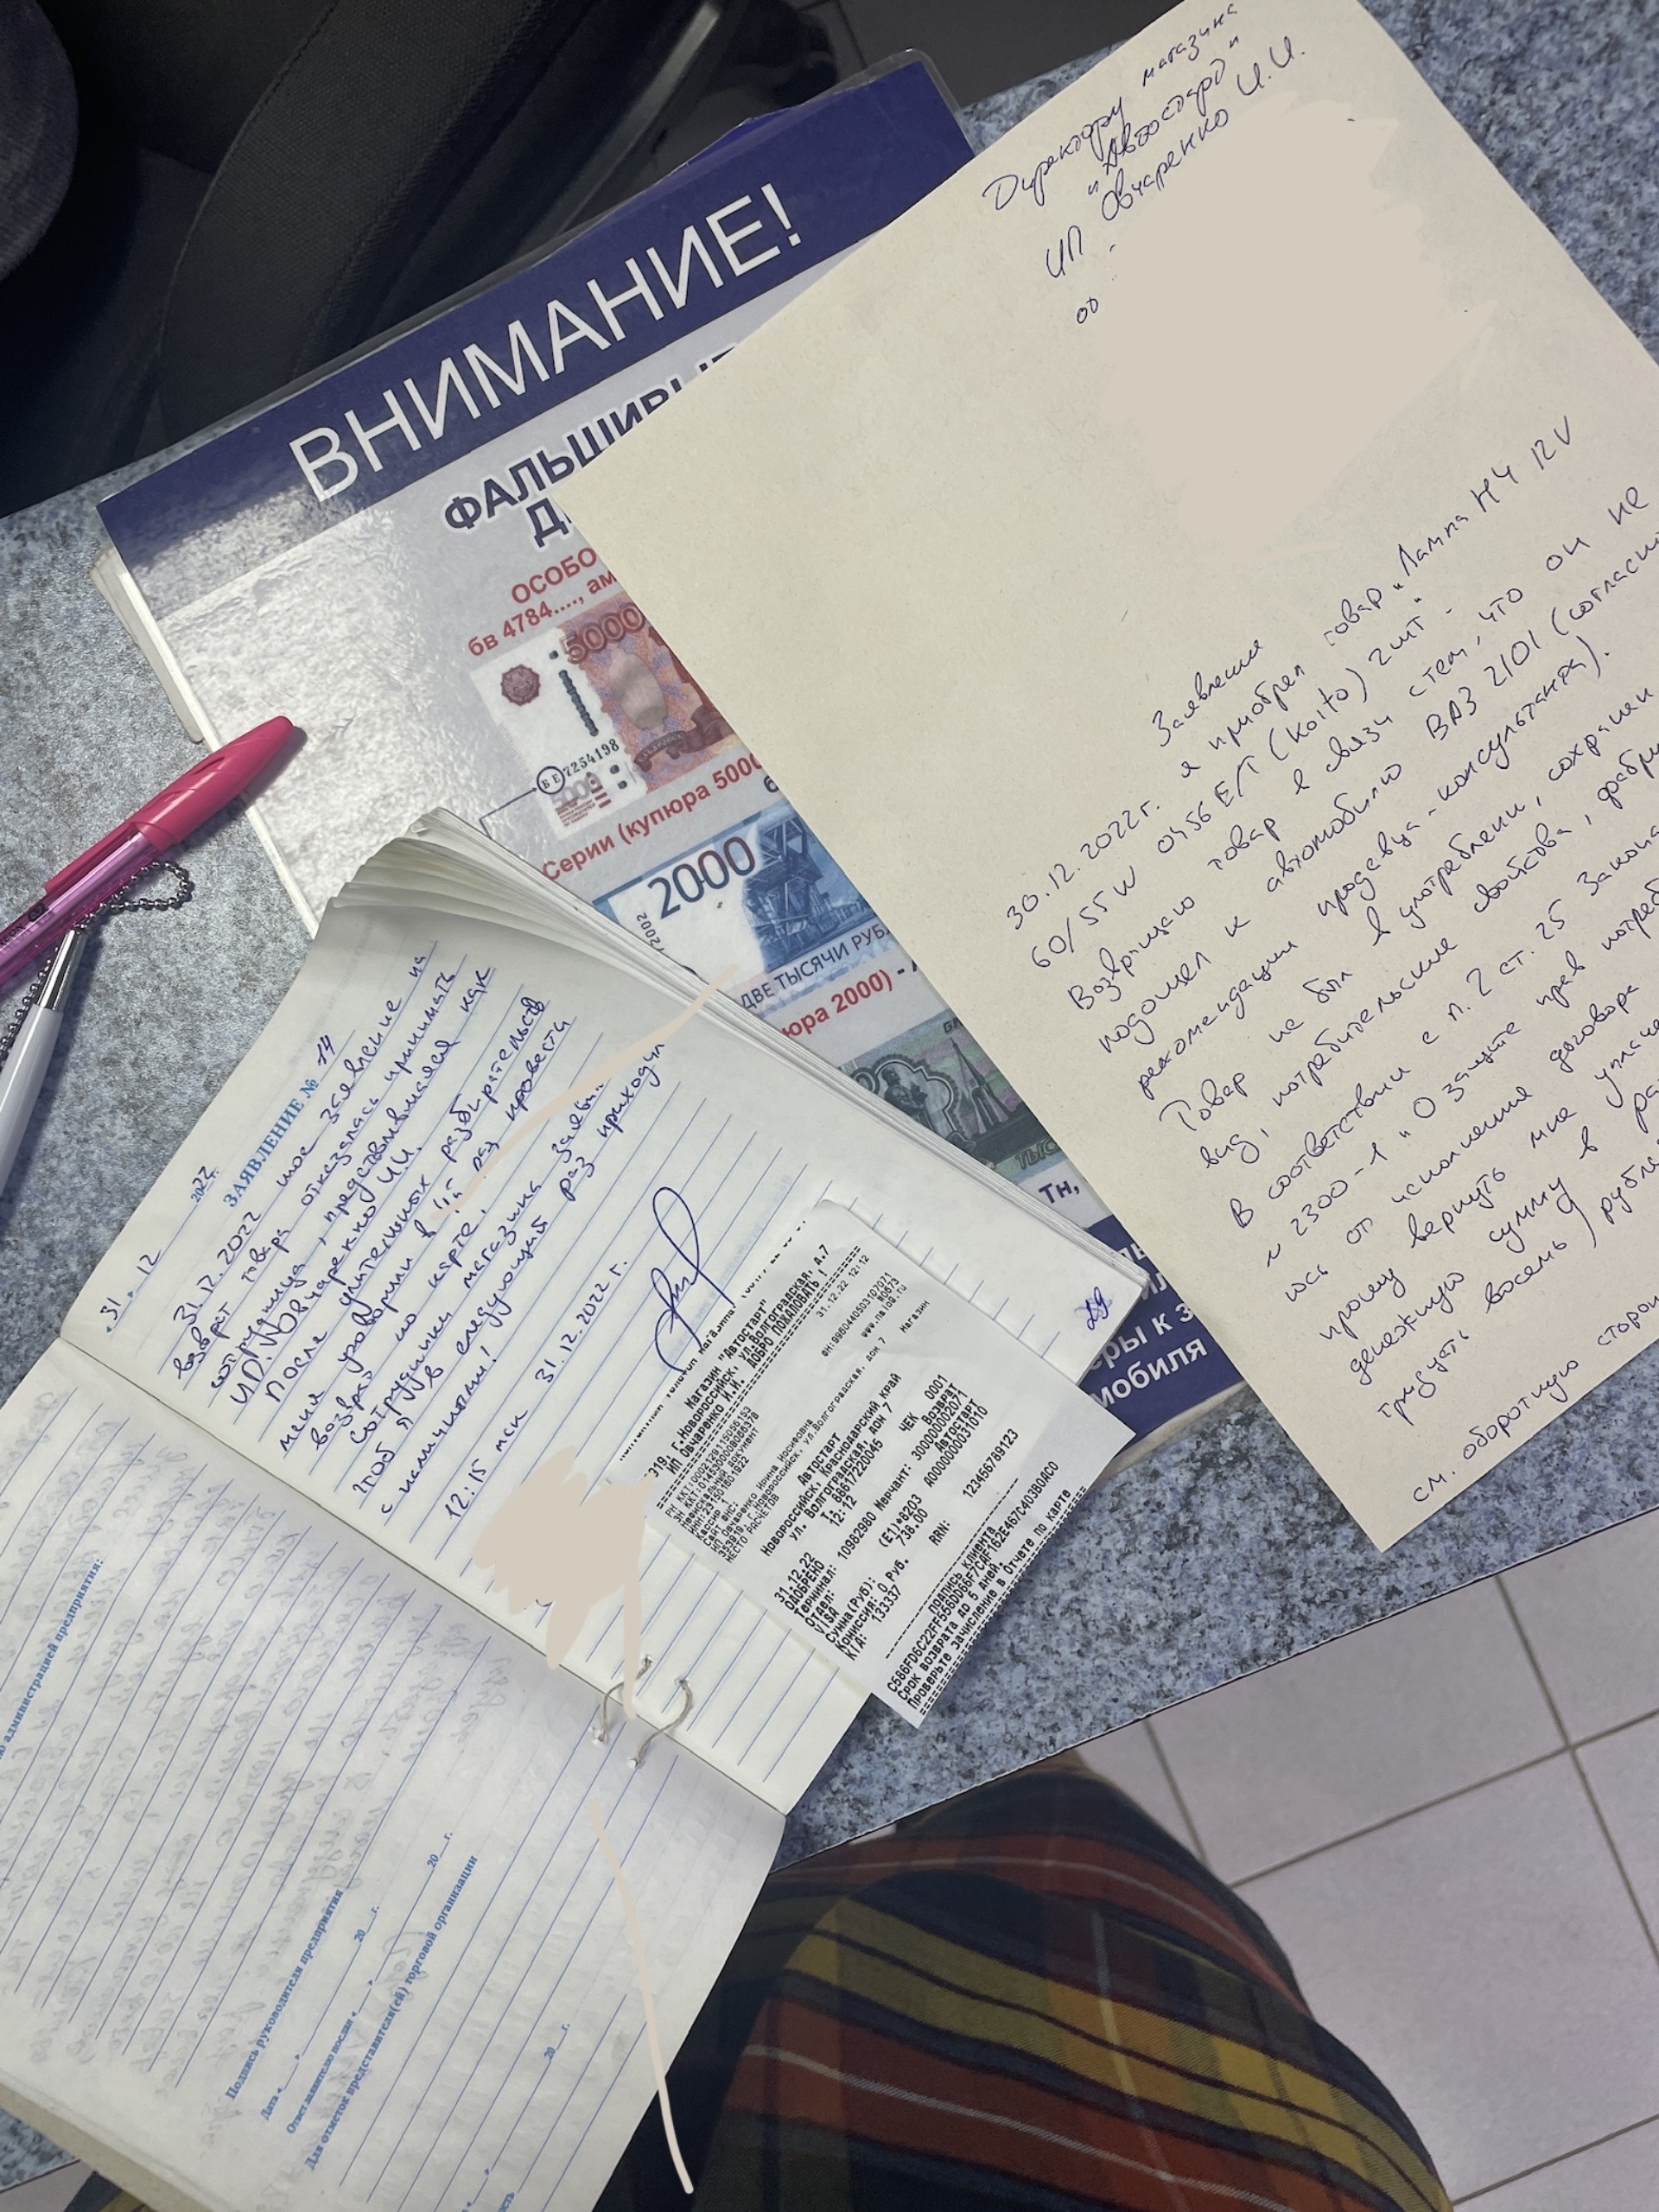 ВНИМАНИЕ!
ФАЛЬШИВЫЕ
ОСОБО
бв 4784...., ам
5000
БЕ7254198
Серии (купюра 5000
2000
2002
ДВЕ ТЫСЯЧИ РУБ
юра 2000) -
ТЫС
Тн,
еры к з
мобиля
Директору магазина
"Автостарт"
ИП Овчаренко И.И.
от
Заявление
30.12.2022г. я приобрел товар "Лампа H4 12V
60/55W 0456 E/T (Koito) 2шт".
Возвращаю товар в связи с тем, что он не
подошел к автомобилю ВАЗ 2101 (согласно
рекомендации продавца-консультанта).
Товар не был в употреблении, сохранен
вид, потребительские свойства, фабри
В соответствии с п. 2 ст. 25 Закона
N 2300-1 "О защите прав потреб
от исполнения договора
прошу вернуть мне уплаче
денежную сумму в раз
тридцать восемь) рубле
см. оборотную сторон
31.12 2022г.
ЗАЯВЛЕНИЕ № 14
31.12.2022 мое заявление на
возврат товара отказалась принимать
сотрудница, представившаяся как
ИП Овчаренко И.И.
После длительных разбирательств
меня уговорили в раз провести
возврат по карте.
Сотрудники магазина заявили
чтоб я в следующий раз приходил
с наличными!
12:15 мск 31.12.2022г.
29
Магазин "Автостарт"
319, г.Новороссийск, ул.Волгоградская, д.7
ИП Овчаренко И.И. ДОБРО ПОЖАЛОВАТЬ !
31.12.22 12:12
#0673
www.nalog.ru
ИНН:231501601922
Нефискальный документ
Кассир 1
ИП Овчаренко Ирина Иосифовна
353919, г.Новороссийск, ул.Волгоградская, дом 7 Магазин
МЕСТО РАСЧЕТОВ
Автостарт
Новороссийск, Краснодарский край
ул. Волгоградская, дом 7
Т: 88617220045
31.12.22 12:12 ЧЕК 0001
ОДОБРЕНО Возврат
Терминал: 10982980 Мерчант: 300000002071
Отдел: Автостарт
VISA (E1)*8203 A0000000031010
Сумма(Руб): 738.00
Комиссия: 0 Руб.
КП/А: 133337 RRN: 123456789123
подпись клиента
Срок возврата до 5 дней.
Проверьте зачисление в Отчете по карте
администрацией предприятия:
Подпись руководителя предприятия
Дата « » 20 г.
Ответ заявителю послан « » 20 г.
Для отметок представителя(ей) торговой организации
20 г.